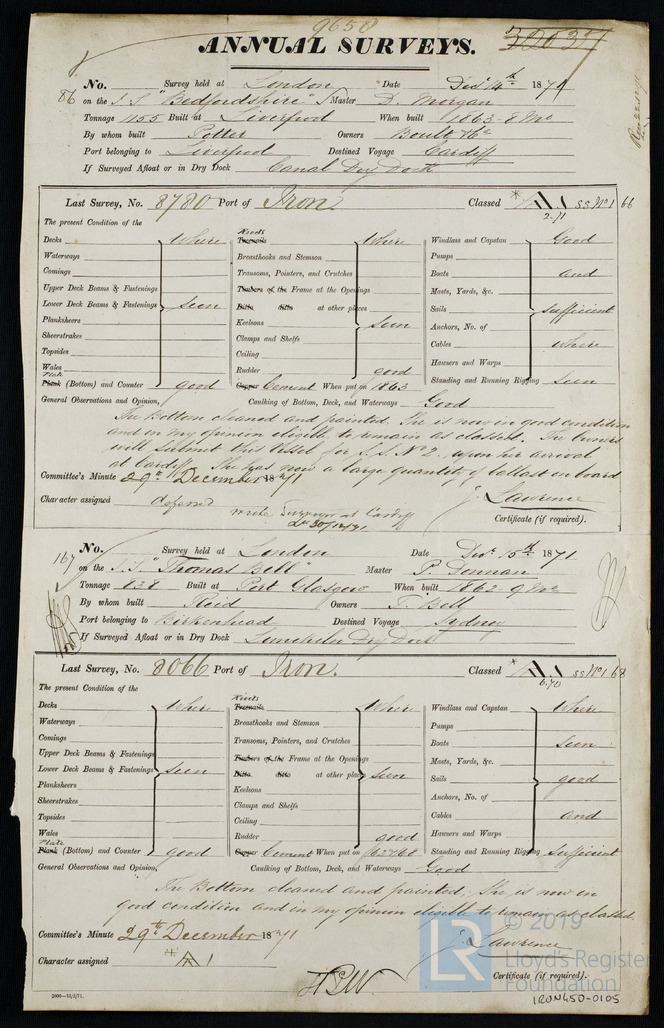 9658
ANNUAL SURVEYS.
86
No. Survey held at London Date Decr 14th 1871
on the S.S. "Bedfordshire" Master D. Morgan
Tonnage 1155 Built at Liverpool When built 1863-8 Mo
By whom built Potter Owners Boult & Co
Port belonging to Liverpool Destined Voyage Cardiff
If Surveyed Afloat or in Dry Dock Canal Dry Dock
Last Survey, No. 8780 Port of Iron. Classed A.1 SS No 1 66
2-71
The present Condition of the
Decks Where
Waterways
Comings
Upper Deck Beams & Fastenings
Lower Deck Beams & Fastenings seen
Planksheers
Sheerstrakes
Topsides
Wales
Plate
Plank (Bottom) and Counter good
Rivets
Treenails Where
Breasthooks and Stemson
Transoms, Pointers, and Crutches
Timbers of the Frame at the Openings
Ditto ditto at other places
Keelsons seen
Clamps and Shelfs
Ceiling
Rudder good
Copper Cement When put on 1863
Windlass and Capstan Good
Pumps
Boats and
Masts, Yards, &c.
Sails sufficient
Anchors, No. of
Cables where
Hawsers and Warps
Standing and Running Rigging seen
General Observations and Opinion, Caulking of Bottom, Deck, and Waterways Good
The Bottom cleaned and painted. She is now in good condition
and in my opinion eligible to remain as classed. The Owners
will submit this Vessel for S.S. No 2. upon her arrival
at Cardiff. She has now a large quantity of ballast on board
Committee's Minute 29th December 1871
J. Lawrence
Character assigned deferred
write Surveyor at Cardiff
30/12/71
Certificate (if required).
167
No. Survey held at London Date Decr 15th 1871
on the S.S. "Thomas Bell" Master P. Dennan
Tonnage 838 Built at Port Glasgow When built 1862-9 Mo
By whom built Reid Owners T. Bell
Port belonging to Birkenhead Destined Voyage Sydney
If Surveyed Afloat or in Dry Dock Limekiln Dry Dock
Last Survey, No. 8066 Port of Iron. Classed A.1 SS No 1 68
6.70
The present Condition of the
Decks Where
Waterways
Comings
Upper Deck Beams & Fastenings
Lower Deck Beams & Fastenings seen
Planksheers
Sheerstrakes
Topsides
Wales
Plate
Plank (Bottom) and Counter good
Rivets
Treenails Where
Breasthooks and Stemson
Transoms, Pointers, and Crutches
Timbers of the Frame at the Openings
Ditto ditto at other places seen
Keelsons
Clamps and Shelfs
Ceiling
Rudder good
Copper Cement When put on
Windlass and Capstan Where
Pumps
Boats seen
Masts, Yards, &c.
Sails good
Anchors, No. of
Cables and
Hawsers and Warps
Standing and Running Rigging Sufficient
General Observations and Opinion, Caulking of Bottom, Deck, and Waterways Good
The Bottom cleaned and painted. She is now in
good condition and in my opinion eligible to remain as classed.
Committee's Minute 29th December 1871
J. Lawrence
Character assigned A 1
Certificate (if required).
2000—13/2/71.
© 2019
LR Lloyd's Register
Foundation
IRON450-0105